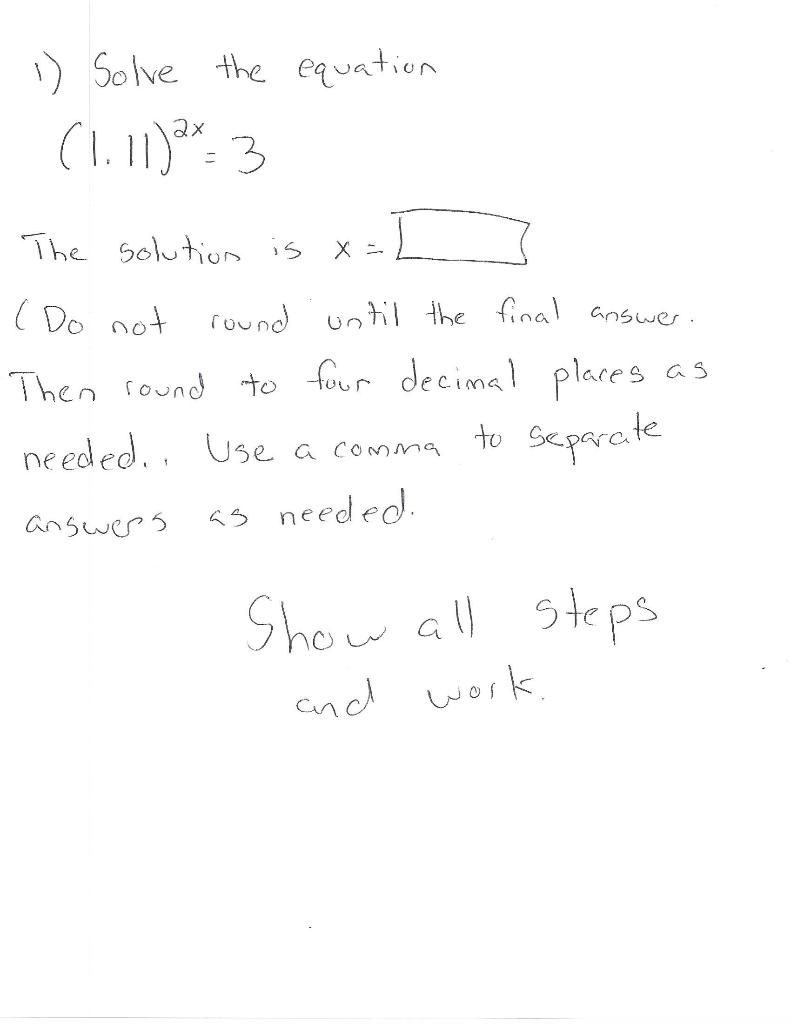 1) Solve the equation
(1.11)^2x = 3
The solution is x =
(Do not round until the final answer.
Then round to four decimal places as
needed.. Use a comma to separate
answers as needed.
Show all steps
and work.